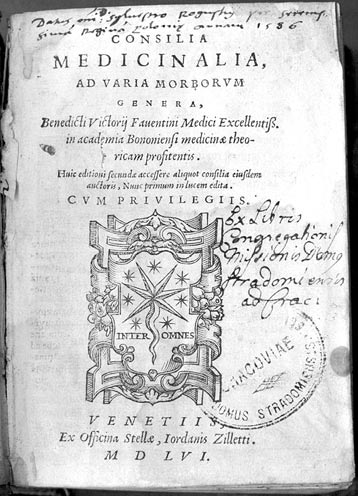 1556
CONSILIA
MEDICINALIA,
AD VARIA MORBORVM
GENERA,
Benedicti Victorij Fauentini Medici Excellentiß.
in academia Bononiensi medicinæ theo-
ricam profitentis.
Huic editioni secundæ accessere aliquot consilia eiusdem
auctoris, Nunc primum in lucem edita.
CVM PRIVILEGIIS.
Ex Libris
Congregationis
Missionis Domus
Stradomiensis
ad Crac:
INTER OMNES
CRACOVIAE
DOMUS STRADOMIENSIS
VENETIIS,
Ex Officina Stellæ, Iordanis Zilletti.
M D LVI.